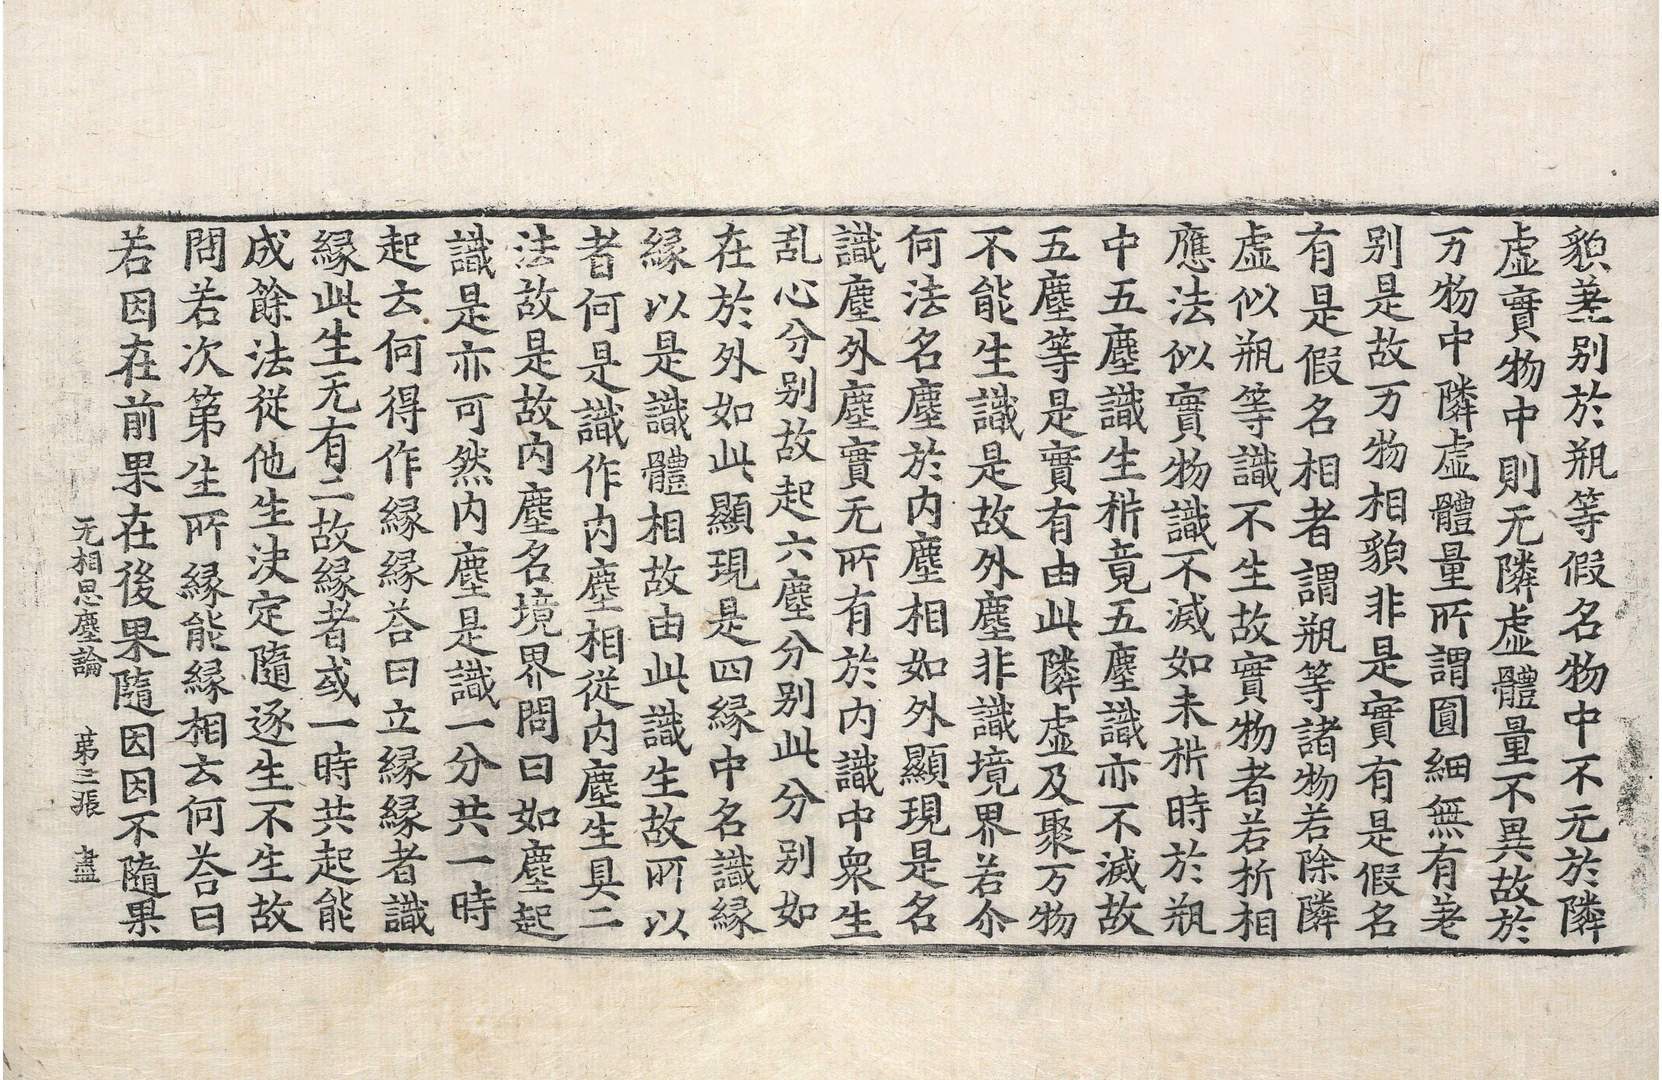 貌差别於瓶等假名物中不无於隣
虛實物中則无隣虛體量不異故於
万物中隣虛體量所謂圓細無有差
别是故万物相貌非是實有是假名
有是假名相者謂瓶等諸物若除隣
虛似瓶等識不生故實物者若析相
應法似實物識不滅如未析時於瓶
中五塵識生析竟五塵識亦不滅故
五塵等是實有由此隣虛及聚万物
不能生識是故外塵非識境界若尒
何法名塵於内塵相如外顯現是名
識塵外塵實无所有於内識中衆生
乱心分别故起六塵分别此分别如
在於外如此顯現是四縁中名識縁
縁以是識體相故由此識生故所以
者何是識作内塵相從内塵生具二
法故是故内塵名境界問曰如塵起
識是亦可然内塵是識一分共一時
起云何得作縁縁荅曰立縁縁者識
縁此生无有二故縁者或一時共起能
成餘法從他生决定隨逐生不生故
問若次第生所縁能縁相云何荅曰
若因在前果在後果隨因因不隨果
无相思塵論　第三張　盡